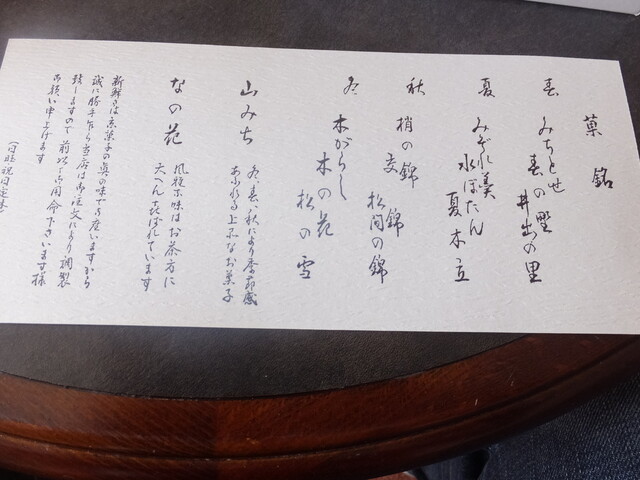 菓銘
春 みちとせ
春の野
井出の里
夏 みぞれ羹
水ぼたん
夏木立
秋 梢の錦
交錦
松間の錦
冬 木がらし
木の花
松の雪
山みち 冬、春、秋により季節感
あふれる上品なお菓子
なの花 風雅な味はお茶方に
大へん喜ばれています
新鮮さは京菓子の真の味でございますから
誠に勝手乍ら当店は御注文により調製
致しますので前以てご用命下さいます様
お願い申上げます
(日曜祝日定休